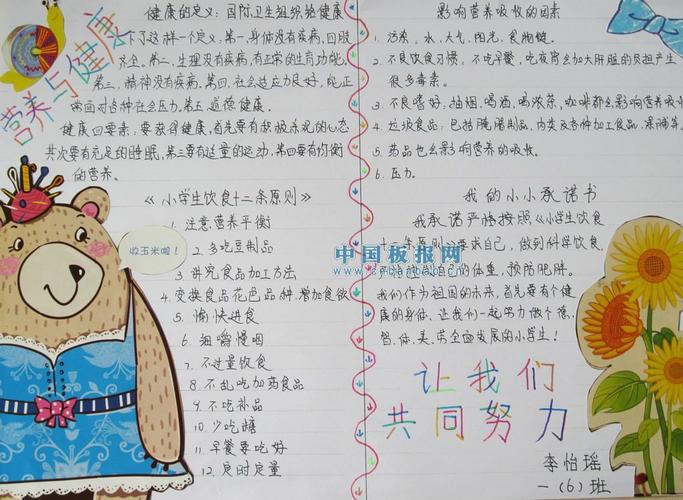 营养与健康
健康的定义：国际卫生组织给健康
下了这样一个定义，第一，身体没有疾病，四肢
齐全。第二，生理没有疾病，有正常的生育功能，
第三，精神没有疾病，第四，社会适应力良好，能正
常面对各种社会压力，第五，道德健康。
健康四要素：要获得健康，首先要有积极乐观的心态
其次要有充足的睡眠，第三要有适量的运动，第四要有均衡
的营养。
《小学生饮食十二条原则》
1. 注意营养平衡
2. 多吃豆制品
3. 讲究食品加工方法
4. 变换食品花色品种，增加食欲
5 愉快进食
6 细嚼慢咽
7. 不过量饮食
8. 不乱吃加药食品
9. 不吃补品
10. 少吃糖
11. 早餐要吃好
12. 定时定量
收玉米啦！
影响营养吸收的因素
1. 污染，水，大气，阳光，食物链。
2. 不良饮食习惯，不吃早餐，吃夜宵会加大肝脏的负担产生
很多毒素。
3. 不良嗜好，抽烟，喝酒，喝浓茶，咖啡都会影响营养吸收
4. 垃圾食品：包括腌腊制品，肉类及各种加工食品，果脯等。
5. 药品也会影响营养的吸收。
6. 压力。
我的小小承诺书
我承诺严格按照《小学生饮食
十二条原则》要求自己，做到科学饮食，
自己的体重，预防肥胖。
我们作为祖国的未来，首先要有个健
康的身体，让我们一起努力做个德、
智、体、美、劳全面发展的小学生！
让我们
共同努力
李怡瑶
一（6）班
中国板报网